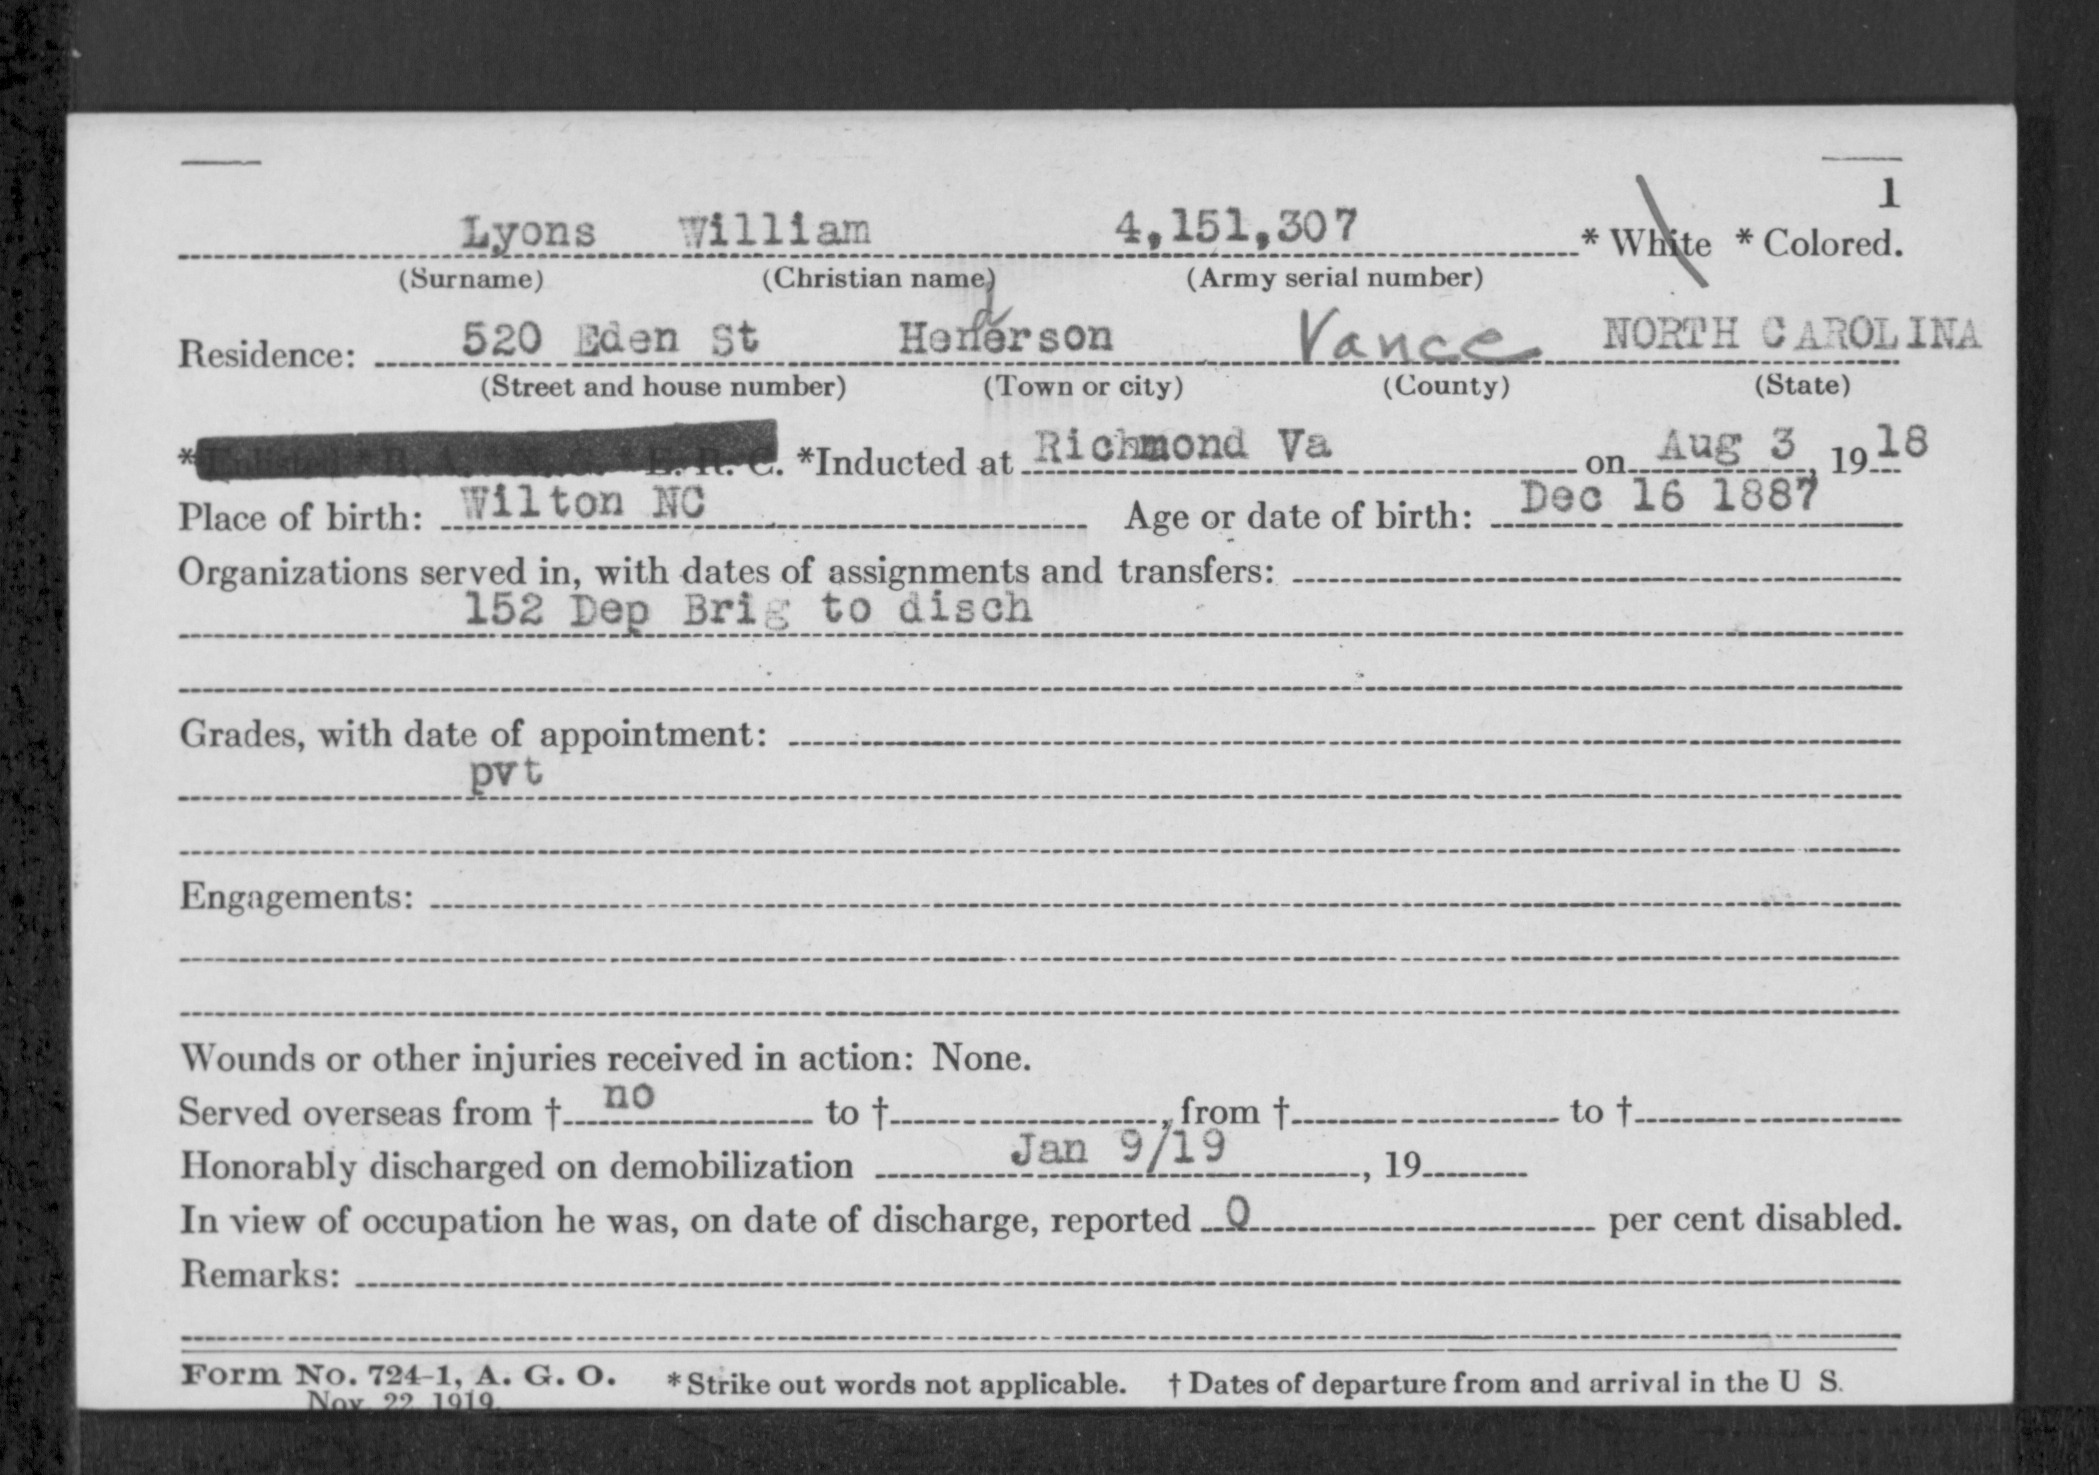 1
Lyons William 4,151,307 * White * Colored.
(Surname) (Christian name) (Army serial number)
Residence: 520 Eden St Henderson Vance NORTH CAROLINA
(Street and house number) (Town or city) (County) (State)
* Enlisted * R. A. * E. R. C. *Inducted at Richmond Va on Aug 3, 1918
Place of birth: Wilton NC Age or date of birth: Dec 16 1887
Organizations served in, with dates of assignments and transfers:
152 Dep Brig to disch
Grades, with date of appointment:
pvt
Engagements:
Wounds or other injuries received in action: None.
Served overseas from † no to †, from † to †
Honorably discharged on demobilization Jan 9/19, 19
In view of occupation he was, on date of discharge, reported 0 per cent disabled.
Remarks:
Form No. 724-1, A. G. O. * Strike out words not applicable. † Dates of departure from and arrival in the U S.
Nov. 22 1919.